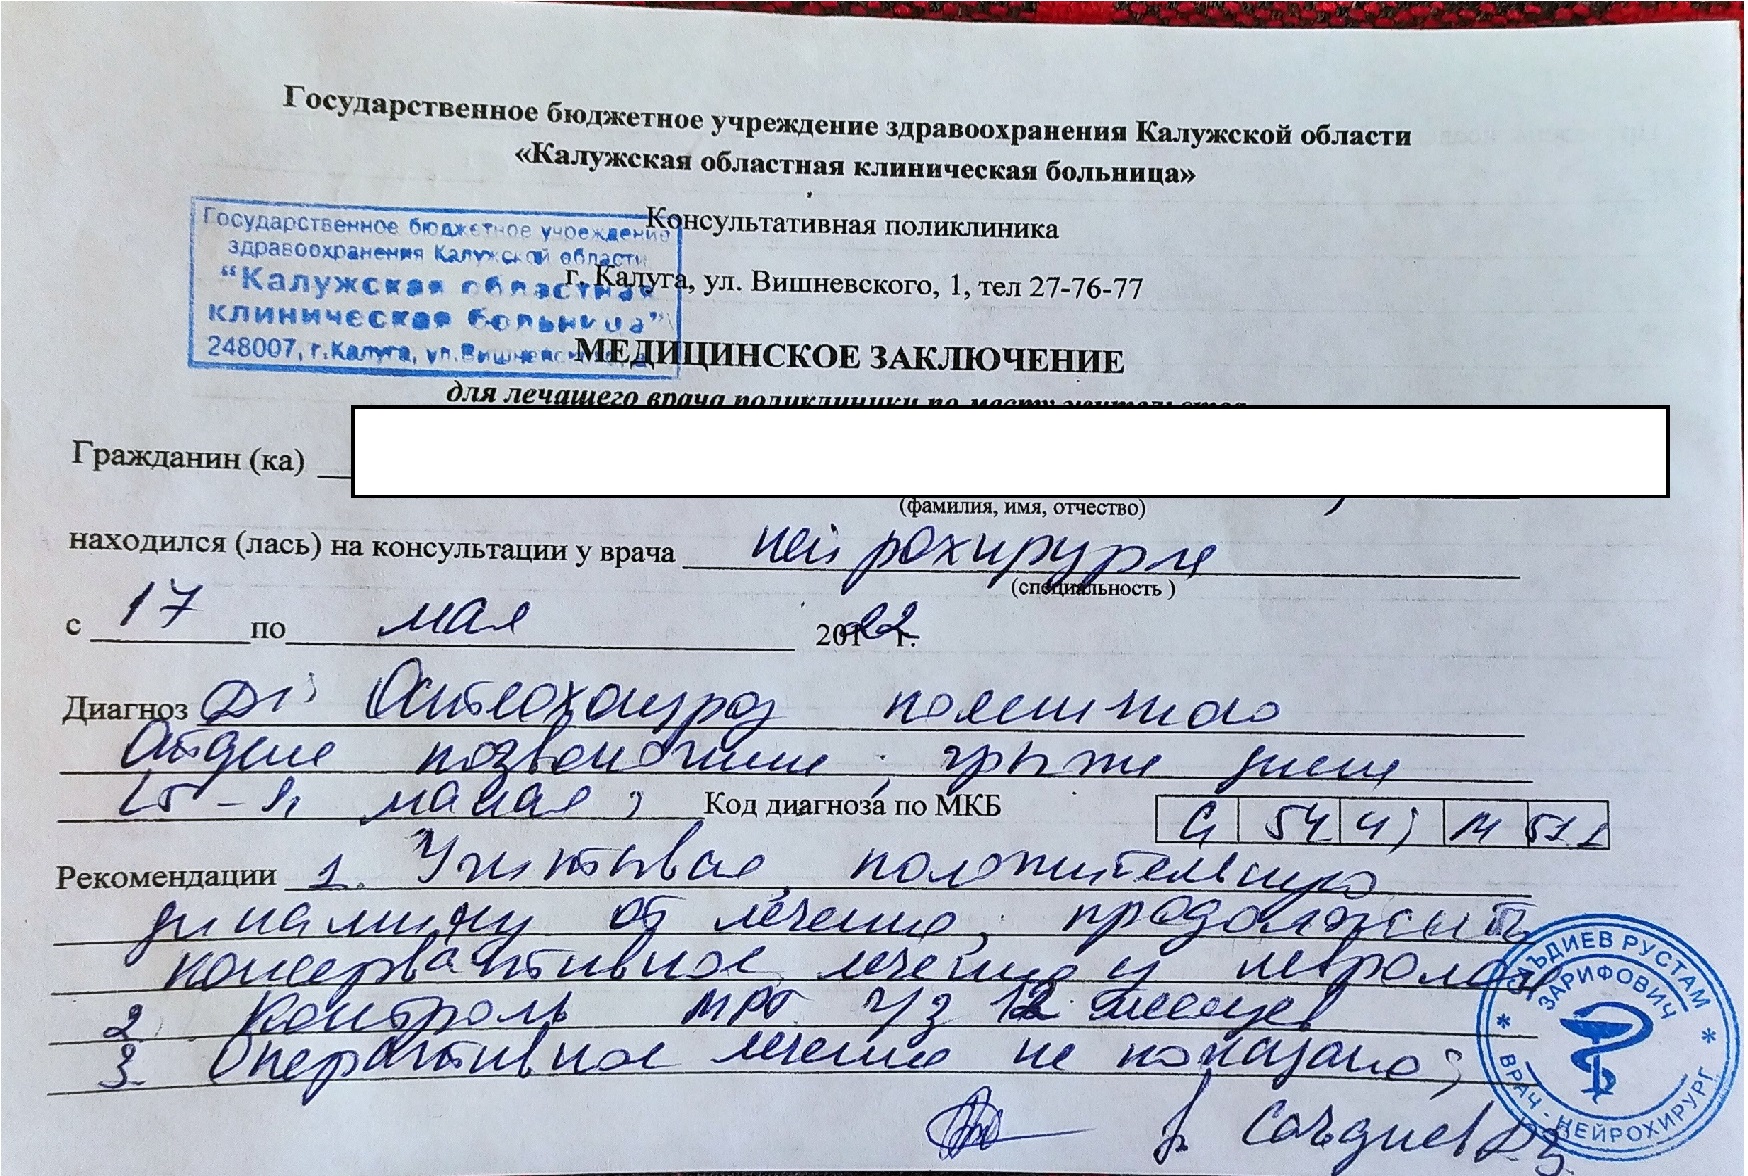 Государственное бюджетное учреждение здравоохранения Калужской области
«Калужская областная клиническая больница»
Консультативная поликлиника
г. Калуга, ул. Вишневского, 1, тел 27-76-77
Государственное бюджетное учреждение
здравоохранения Калужской области
"Калужская областная
клиническая больница"
248007, г.Калуга, ул.Вишневского
МЕДИЦИНСКОЕ ЗАКЛЮЧЕНИЕ
для лечащего врача поликлиники по месту жительства
Гражданин (ка)
(фамилия, имя, отчество)
находился (лась) на консультации у врача нейрохирурга
(специальность )
с 17 по мая 2022 г.
Диагноз Ds: Остеохондроз поясничного
отдела позвоночника; грыжа диска
L5-S1 малая; Код диагноза по МКБ G 54 4; M 51.1
Рекомендации 1. Учитывая положительную
динамику от лечения, продолжить
консервативное лечение у невролога
2. Контроль МРТ ч/з 12 месяцев
3. Оперативное лечение не показано;
Саъдиев Р.З.
САЪДИЕВ РУСТАМ
ЗАРИФОВИЧ
* ВРАЧ - НЕЙРОХИРУРГ *